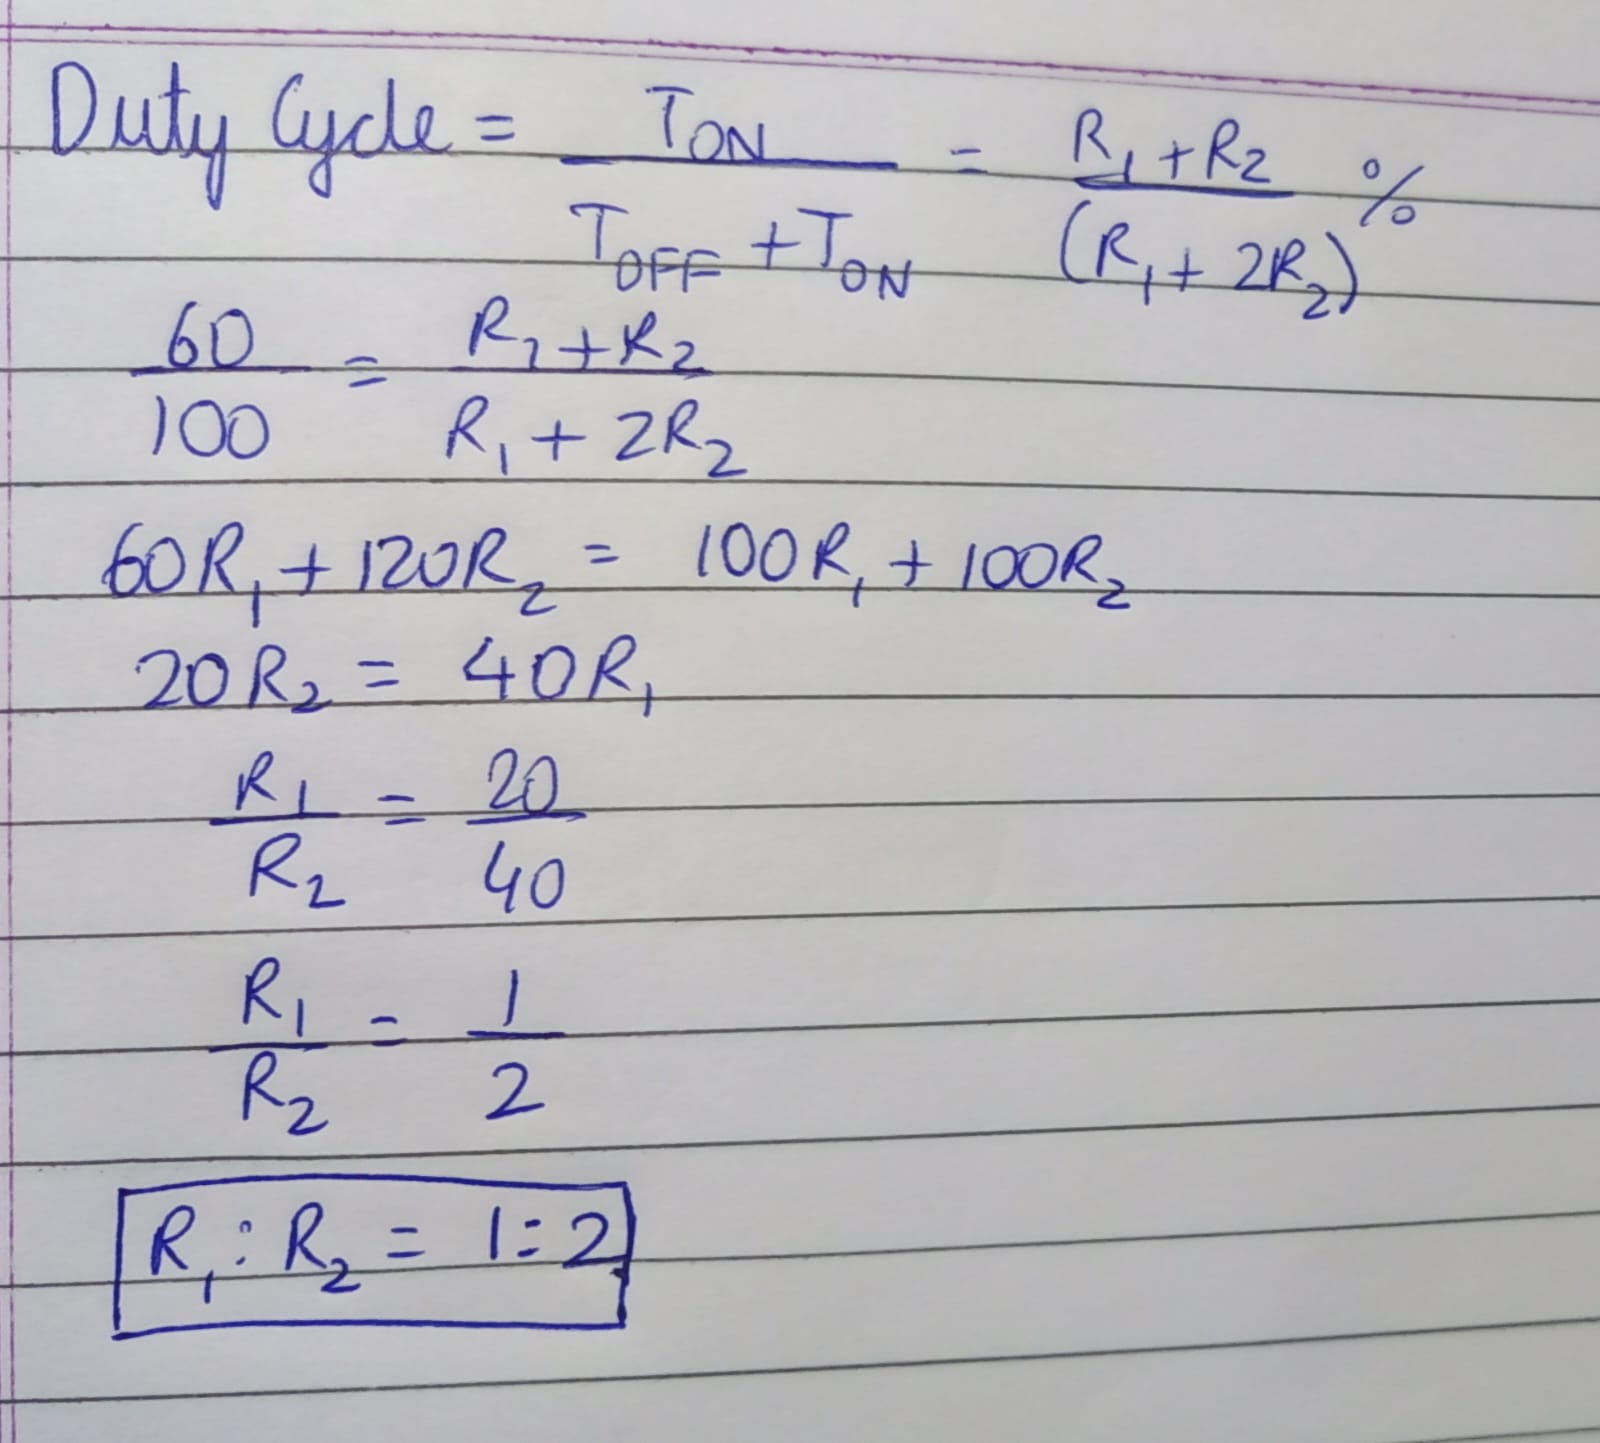 Duty Cycle = T_ON / (T_OFF + T_ON) = R_1 + R_2 / (R_1 + 2R_2) %
60/100 = R_1 + R_2 / R_1 + 2R_2
60R_1 + 120R_2 = 100R_1 + 100R_2
20R_2 = 40R_1
R_1/R_2 = 20/40
R_1/R_2 = 1/2
R_1 : R_2 = 1 : 2